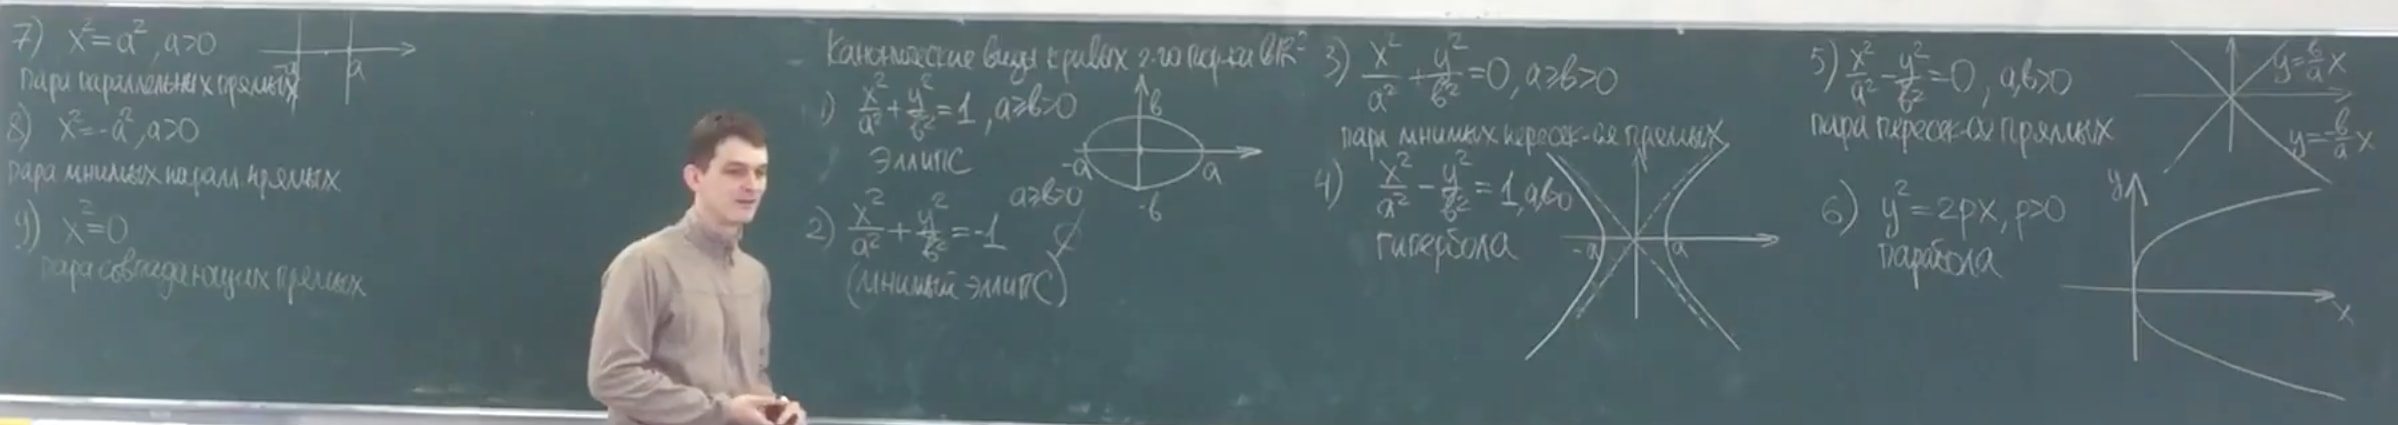 7) x² = a², a>0
-a a
пара параллельных прямых
8) x² = -a², a>0
пара мнимых паралл. прямых
9) x² = 0
пара совпадающих прямых
Канонические виды кривых 2-го пор-ка в ℝ²
1) x²/a² + y²/b² = 1, a≥b>0
эллипс
b
-a a
-b
a≥b>0
2) x²/a² + y²/b² = -1 ∅
(мнимый эллипс)
3) x²/a² + y²/b² = 0, a≥b>0
пара мнимых пересек-ся прямых
4) x²/a² - y²/b² = 1, a,b>0
гипербола
-a a
5) x²/a² - y²/b² = 0, a,b>0
пара пересек-ся прямых
y = b/a x
y = -b/a x
6) y² = 2px, p>0
парабола
y
x